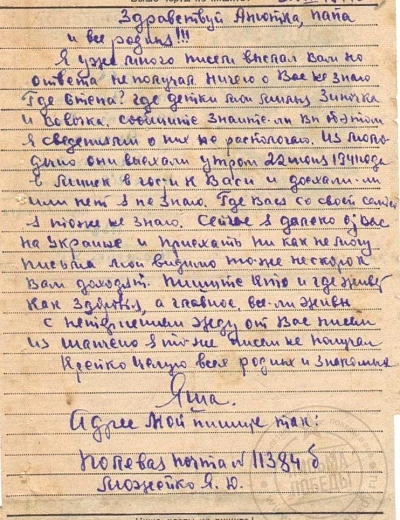 Здравствуй Анютка, папа
и все родные!!!
Я уже много писем выслал Вам но
ответа не получал. Ничего о Вас не знаю
Где Степа? где детки мои милые Зиночка
и Вовочка. сообщите знаите-ли Вы об этом
я сведениями о них не распологаю. Из
они выехали утром 22 июня 1941 года
в Минск в гости к Васи и доехали-ли
или нет я не знаю. Где Вася со своей семьей
я тоже не знаю. Сейчас я далеко от Вас
на Украине и приехать ни как не могу
письма мои видимо тоже не скоро к
Вам доходят. Пишите кто и где живет
Как здоровья, а главное, все-ли живы
С нетерпением жду от Вас писем
из я тоже писем не получал
Крепко целую всех родных и знакомых
Яша.
Адрес мой пишите так:
Полевая почта N 11384 б
Можейко Я. Ю.
ПОБЕДЫ